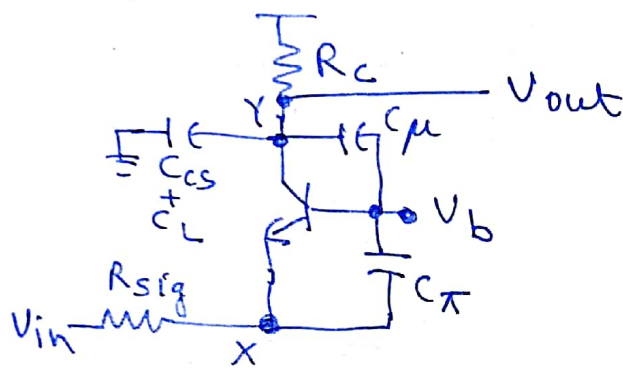 R_C
V_out
Y
C_μ
C_CS
+
C_L
V_b
R_sig
C_π
V_in
X